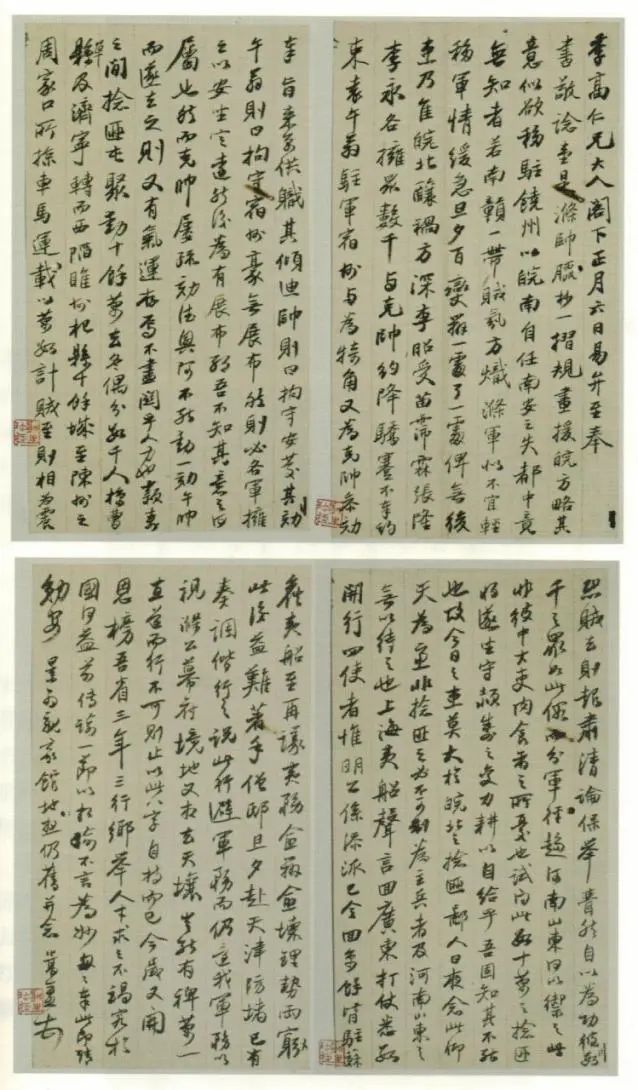 季高仁兄大人閣下正月六日易弁至奉
書敬諗壹是滌帥臘抄一摺規畫援皖方略其
意似欲移駐饒州以皖南自任南安之失都中竟
無知者若南贛一帶賊氛方熾滌軍似不宜輕
移軍情緩急旦夕百變辦一處了一處俾無後
患乃佳皖北釀禍方深李昭受苗霈霖張隆
李永各擁眾數千与克帥約降驕蹇不奉約
束袁午翁駐軍宿州与為犄角又為克帥奏劾
奉旨來京供職其傾迪帥則曰拘守安慶其劾
午翁則曰拘守宿州豪無展布然則必各軍擁
之以安坐定遠然後為有展布邪吾不知其意之何
屬也然而克帥屢疏劾不能動一劾午帥
而遂去之則又有氣運存焉不盡關乎人力也
之間捻匪屯聚動十餘萬去冬偶分數千人擾曹單
縣及濟寧轉而西蹈睢州杞縣十餘城至陳州之
周家口所掠車馬運載以萬數計賊至則相為震
恐賊去則報肅清論保舉然自以為功僅數
千之眾如此假而分軍徑趨河南山東何以禦之此
非彼中大吏肉食者之所憂也試問此數十萬之捻匪
將遂坐守之交力耕以自給乎吾固知其不能
也故今日之患莫大於皖北之捻匪鄙人日夜念此仰
天為憂非捻匪之必不可制為主兵者及河南山東之
無以待之也上海夷船聲言回廣東打仗悉數
開行四使者惟明公係添派已令回京餘皆駐蘇
夷船至再議夷務愈辦愈壞理勢兩窮
此後益難著手僧邸旦夕赴天津防堵已有
奏調偕行之說此行避軍務而仍立我軍務以
視滌公幕府境地又相去天壤豈能有裨萬一
直道而行不可則止以此八字自持而已今歲又開
恩榜吾省三年三行鄉舉人才求之不竭
國何益前傳諭一節以相喻不言為妙即請
勛安 館地仍舊并念